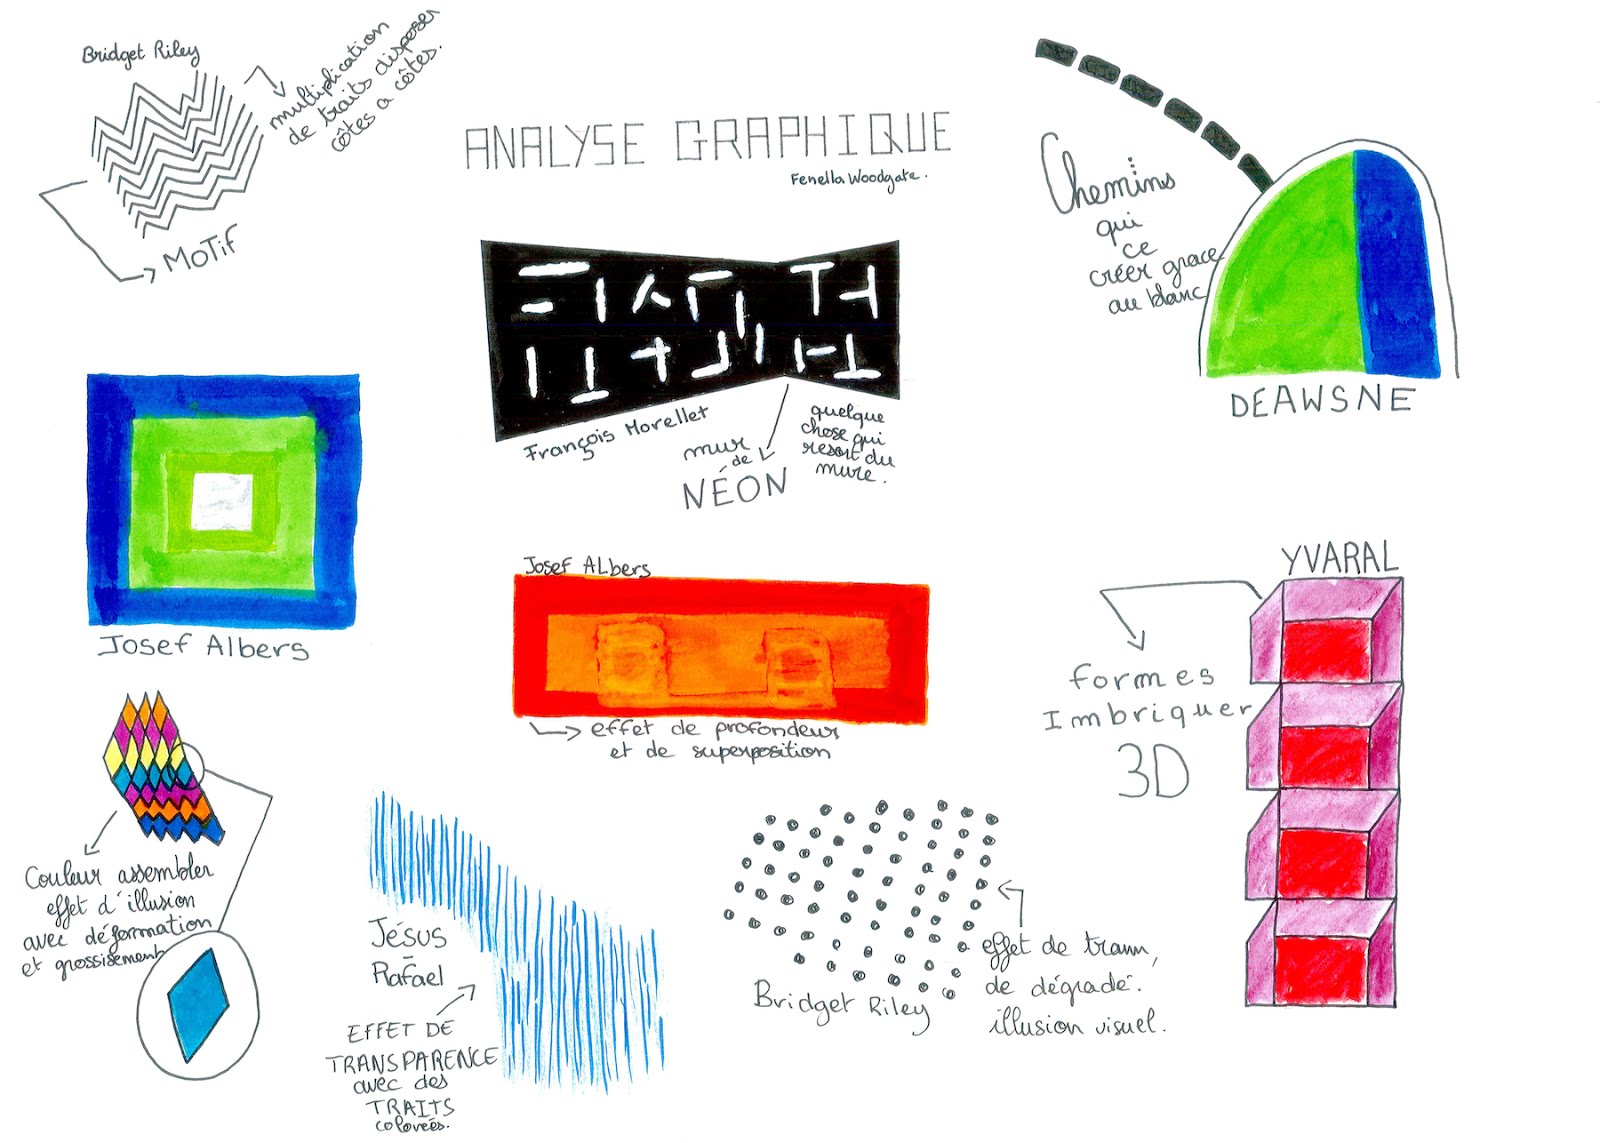 Bridget Riley
multiplication
de traits disposer
côtes a côtes.
MoTif
ANALYSE GRAPHIQUE
Fenella Woodgate.
Chemins
qui
ce
créer grace
au blanc
DEAWSNE
François Morellet
mur
de
NÉON
quelque
chose qui
resort du
mure.
Josef Albers
Josef ALbers
effet de profondeur
et de superposition
YVARAL
formes
Imbriquer
3D
Couleur assembler
effet d'illusion
avec déformation
et grossisement
Jésus
-
Rafael
EFFET DE
TRANSPARENCE
avec des
TRAITS
colorées.
Bridget Riley
effet de tram,
de dégradé.
illusion visuel.